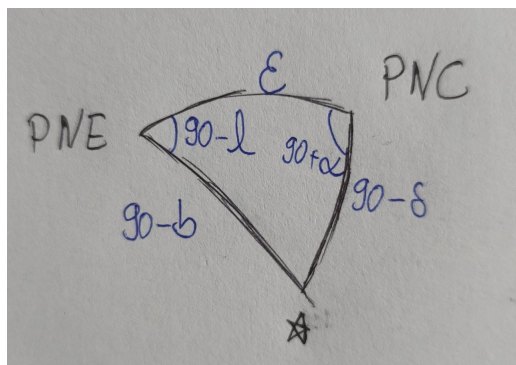 ε
PNC
PNE
90-l
90+α
90-δ
90-b